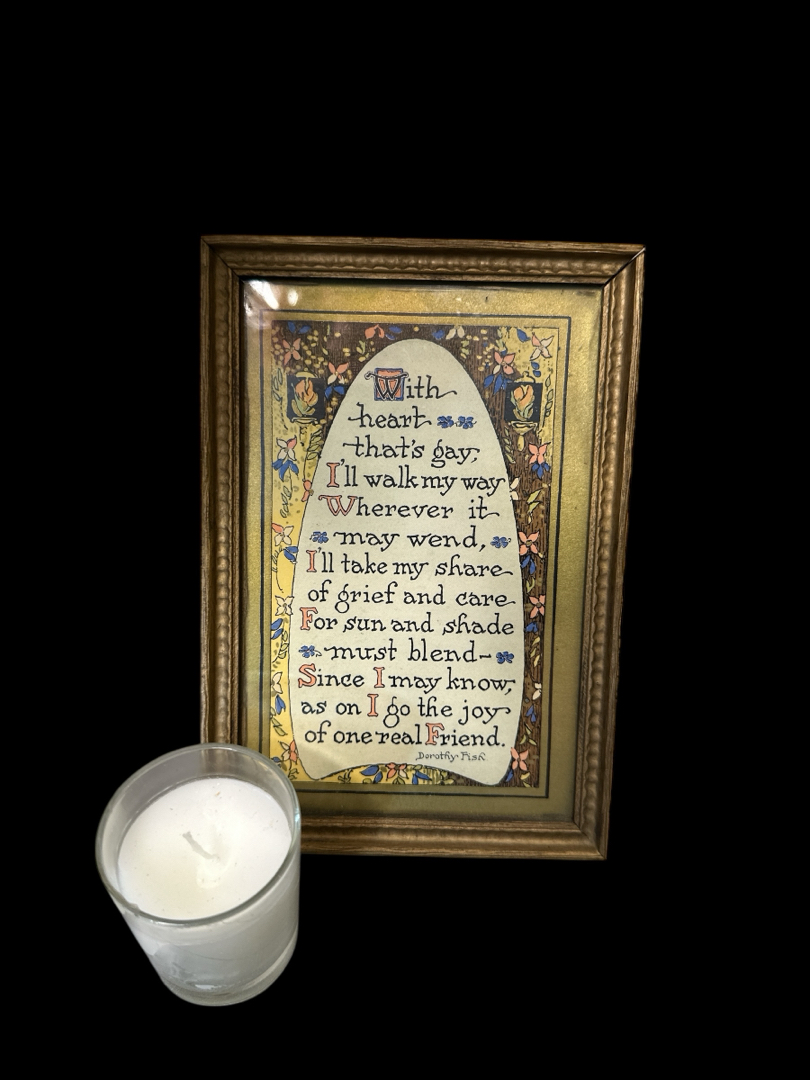 With
heart
that's gay,
I'll walk my way
Wherever it
may wend,
I'll take my share
of grief and care
For sun and shade
must blend-
Since I may know,
as on I go the joy
of one real Friend.
Dorothy Fisk